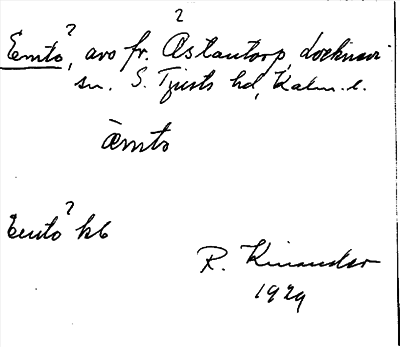 Emto?, avs fr. Åstautorp?, Lockne
sn. S. Tjusts hd, Kalm. l.
æmto
Emto? kb
R. Kinander
1929